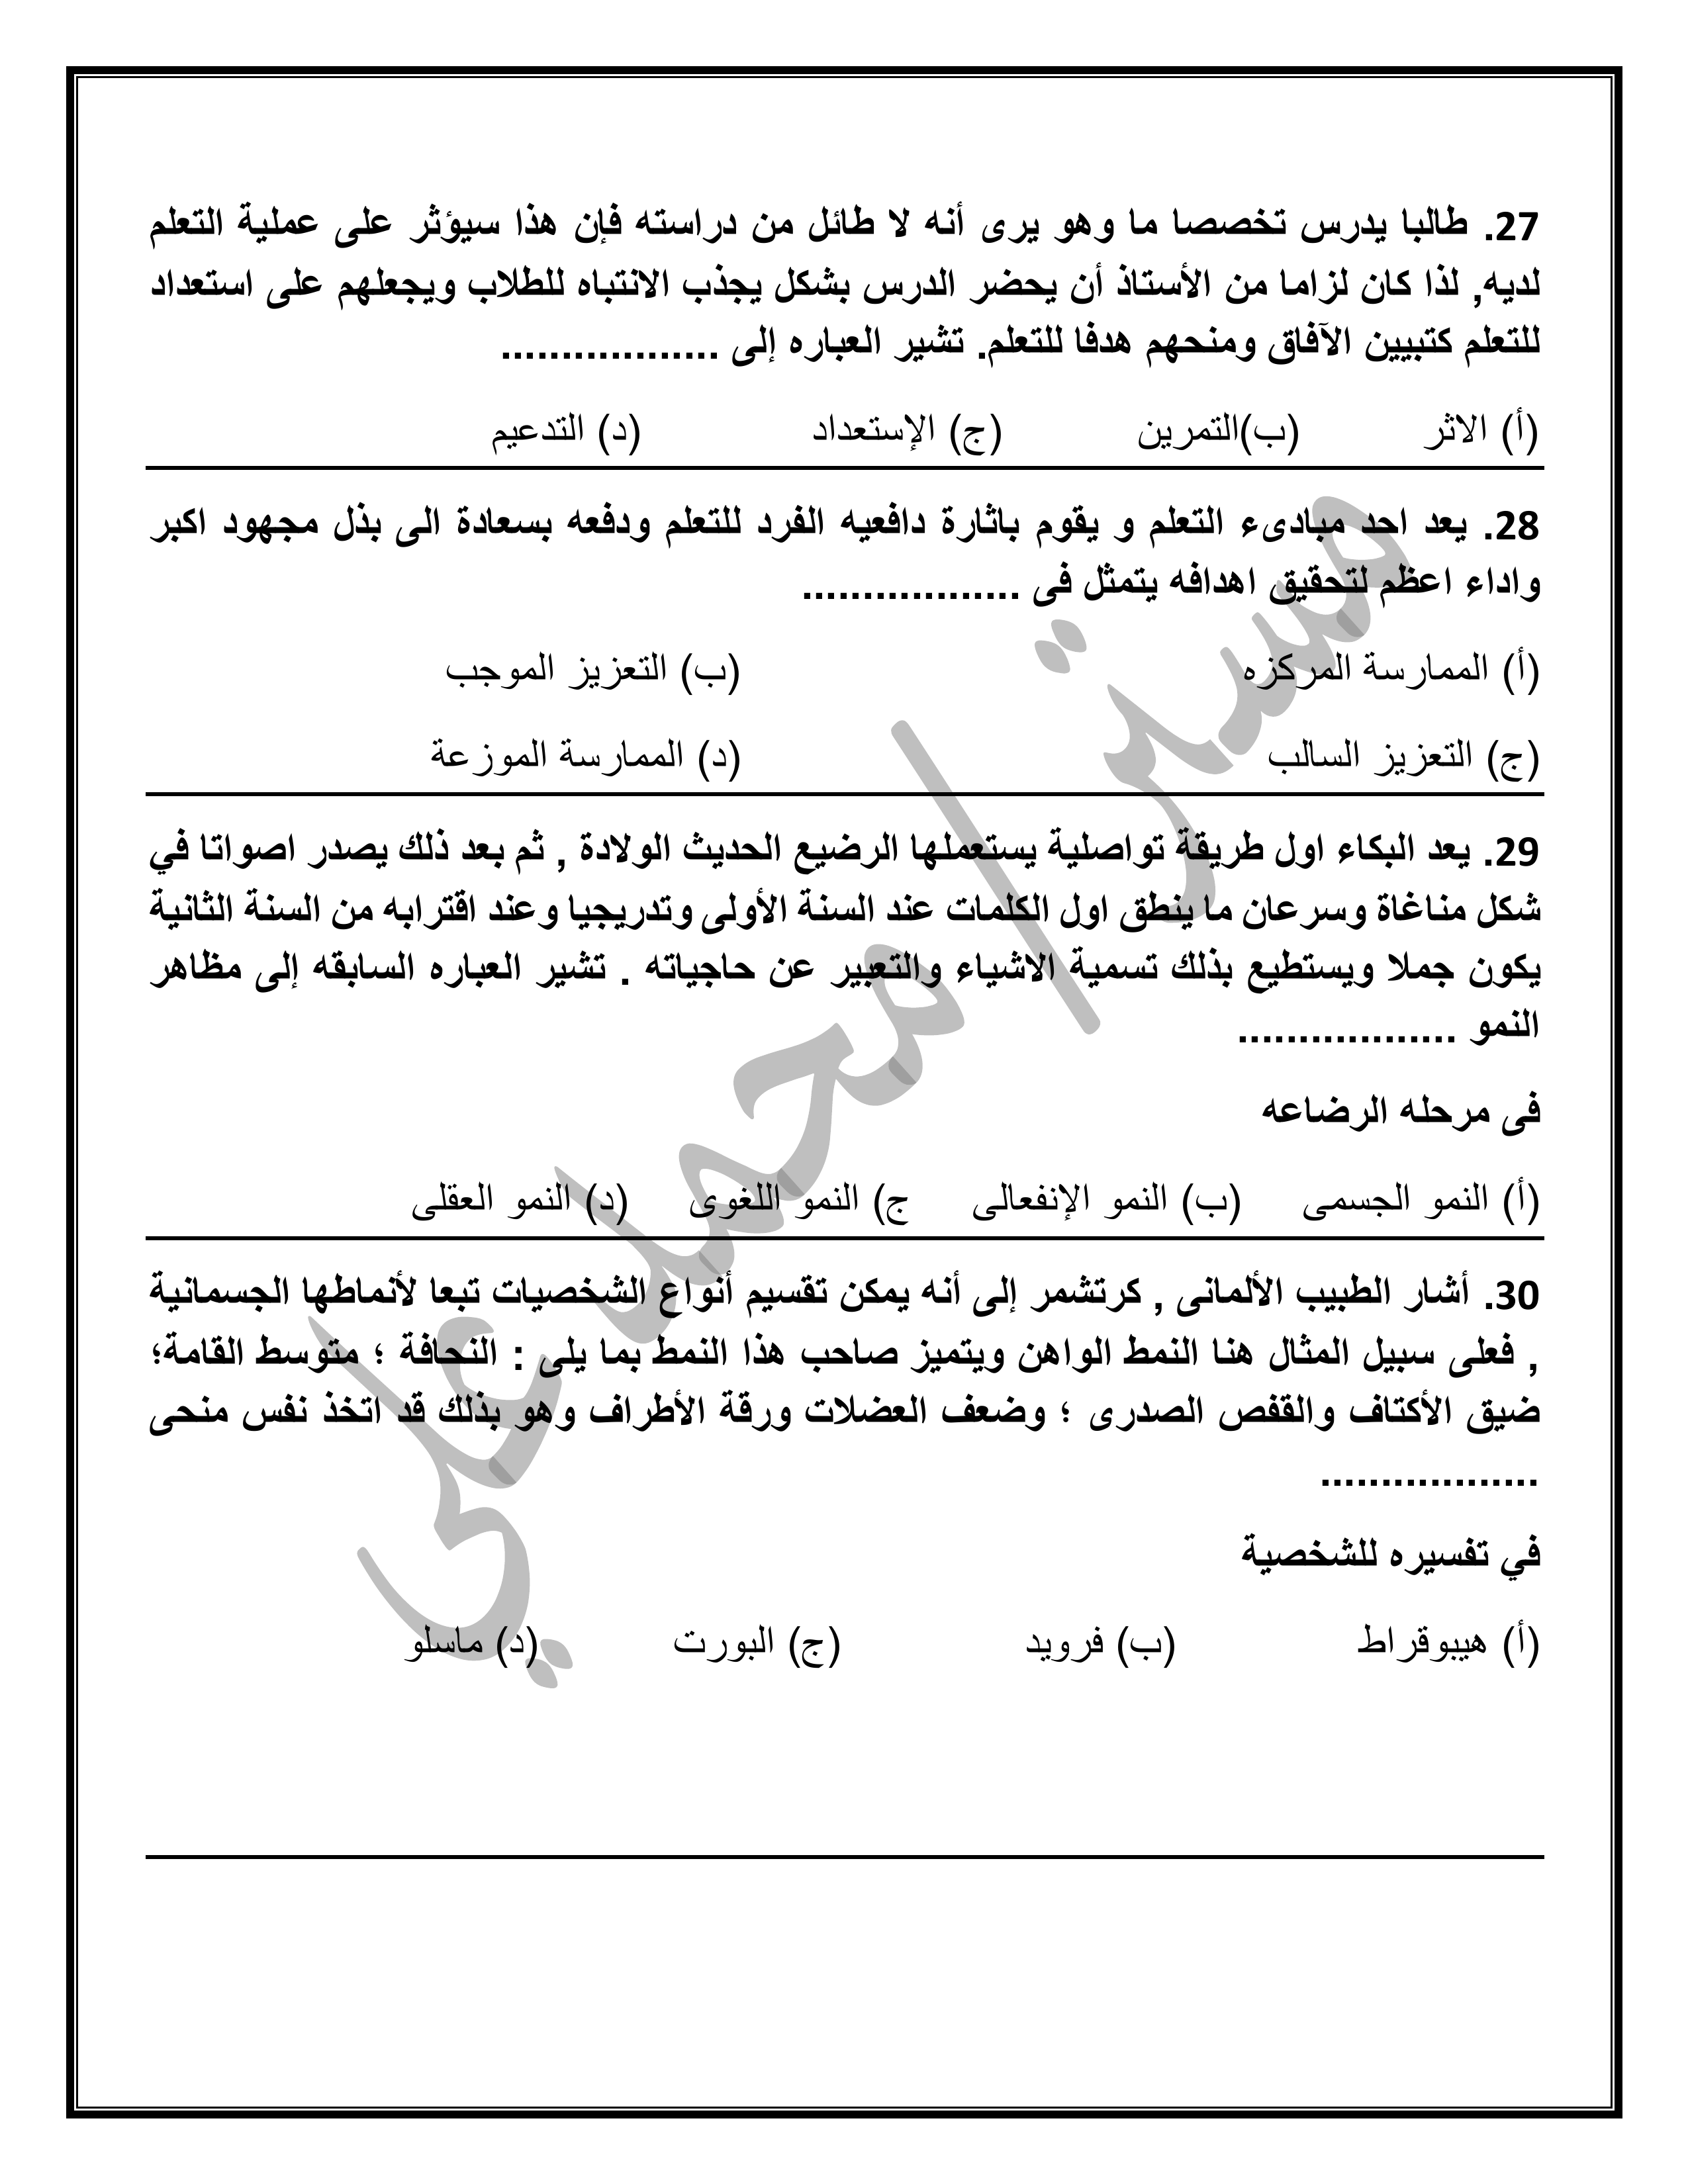 27. طالبا يدرس تخصصا ما وهو يرى أنه لا طائل من دراسته فإن هذا سيؤثر على عملية التعلم
لديه, لذا كان لزاما من الأستاذ أن يحضر الدرس بشكل يجذب الانتباه للطلاب ويجعلهم على استعداد
للتعلم كتبيين الآفاق ومنحهم هدفا للتعلم. تشير العباره إلى ..................
(أ) الاثر (ب)التمرين (ج) الإستعداد (د) التدعيم
28. يعد احد مبادىء التعلم و يقوم باثارة دافعيه الفرد للتعلم ودفعه بسعادة الى بذل مجهود اكبر
واداء اعظم لتحقيق اهدافه يتمثل فى ..................
(أ) الممارسة المركزه (ب) التعزيز الموجب
(ج) التعزيز السالب (د) الممارسة الموزعة
29. يعد البكاء اول طريقة تواصلية يستعملها الرضيع الحديث الولادة , ثم بعد ذلك يصدر اصواتا في
شكل مناغاة وسرعان ما ينطق اول الكلمات عند السنة الأولى وتدريجيا وعند اقترابه من السنة الثانية
يكون جملا ويستطيع بذلك تسمية الاشياء والتعبير عن حاجياته . تشير العباره السابقه إلى مظاهر
النمو ..................
فى مرحله الرضاعه
(أ) النمو الجسمى (ب) النمو الإنفعالى ج) النمو اللغوى (د) النمو العقلى
30. أشار الطبيب الألمانى , كرتشمر إلى أنه يمكن تقسيم أنواع الشخصيات تبعا لأنماطها الجسمانية
, فعلى سبيل المثال هنا النمط الواهن ويتميز صاحب هذا النمط بما يلى : النحافة ؛ متوسط القامة؛
ضيق الأكتاف والقفص الصدرى ؛ وضعف العضلات ورقة الأطراف وهو بذلك قد اتخذ نفس منحى
..................
في تفسيره للشخصية
(أ) هيبوقراط (ب) فرويد (ج) البورت (د) ماسلو
مستر/محمد علي